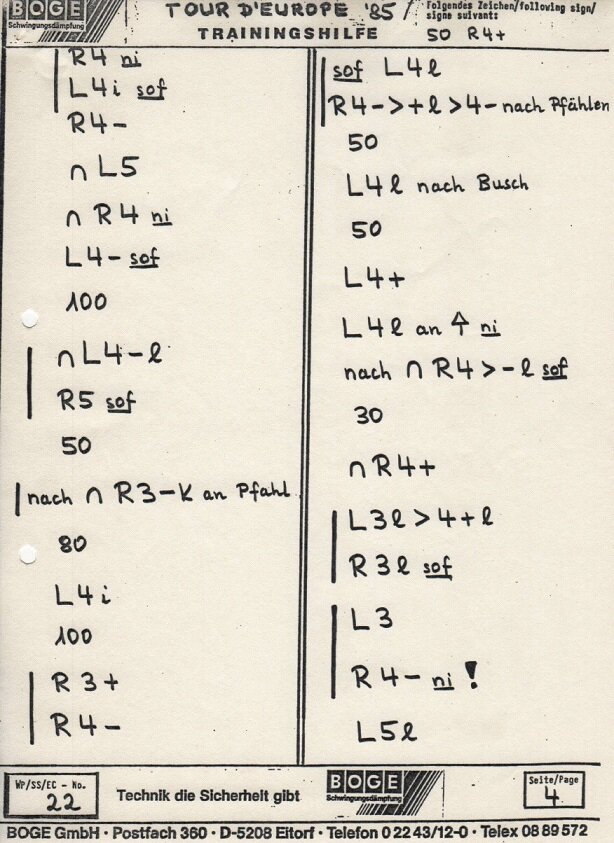 BOGE
Schwingungsdämpfung
TOUR D'EUROPE '85
TRAININGSHILFE
Folgendes Zeichen/following sign/
signe suivant:
50 R4+
R4 ni
L4i sof
R4-
∩ L5
∩ R4 ni
L4- sof
100
∩ L4-l
R5 sof
50
nach ∩ R3-K an Pfahl
80
L4i
100
R3+
R4-
sof L4l
R4->+l>4- nach Pfählen
50
L4l nach Busch
50
L4+
L4l an ni
nach ∩ R4>-l sof
30
∩ R4+
L3l>4+l
R3l sof
L3
R4- ni !
L5l
WP/SS/EC - No.
22
Technik die Sicherheit gibt
BOGE
Schwingungsdämpfung
Seite/Page
4
BOGE GmbH · Postfach 360 · D-5208 Eitorf · Telefon 0 22 43/12-0 · Telex 08 89 572